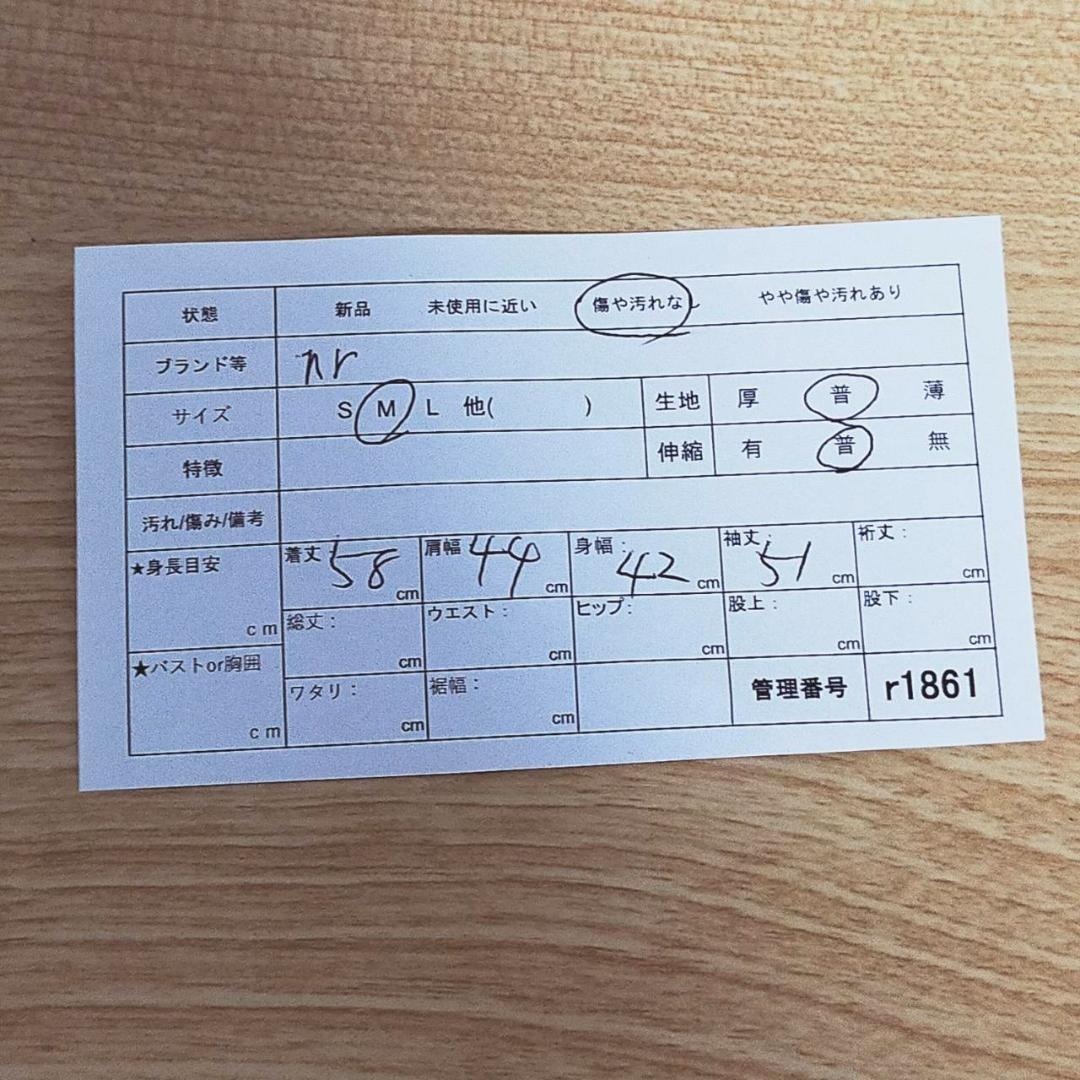 状態 新品 未使用に近い 傷や汚れなし やや傷や汚れあり
ブランド等 nr
サイズ S M L 他( ) 生地 厚 普 薄
特徴 伸縮 有 普 無
汚れ/傷み/備考
★身長目安 cm 着丈 58 cm 肩幅 44 cm 身幅: 42 cm 袖丈: 51 cm 裄丈: cm
総丈: cm ウエスト: cm ヒップ: cm 股上: cm 股下: cm
★バストor胸囲 cm ワタリ: cm 裾幅: cm 管理番号 r1861